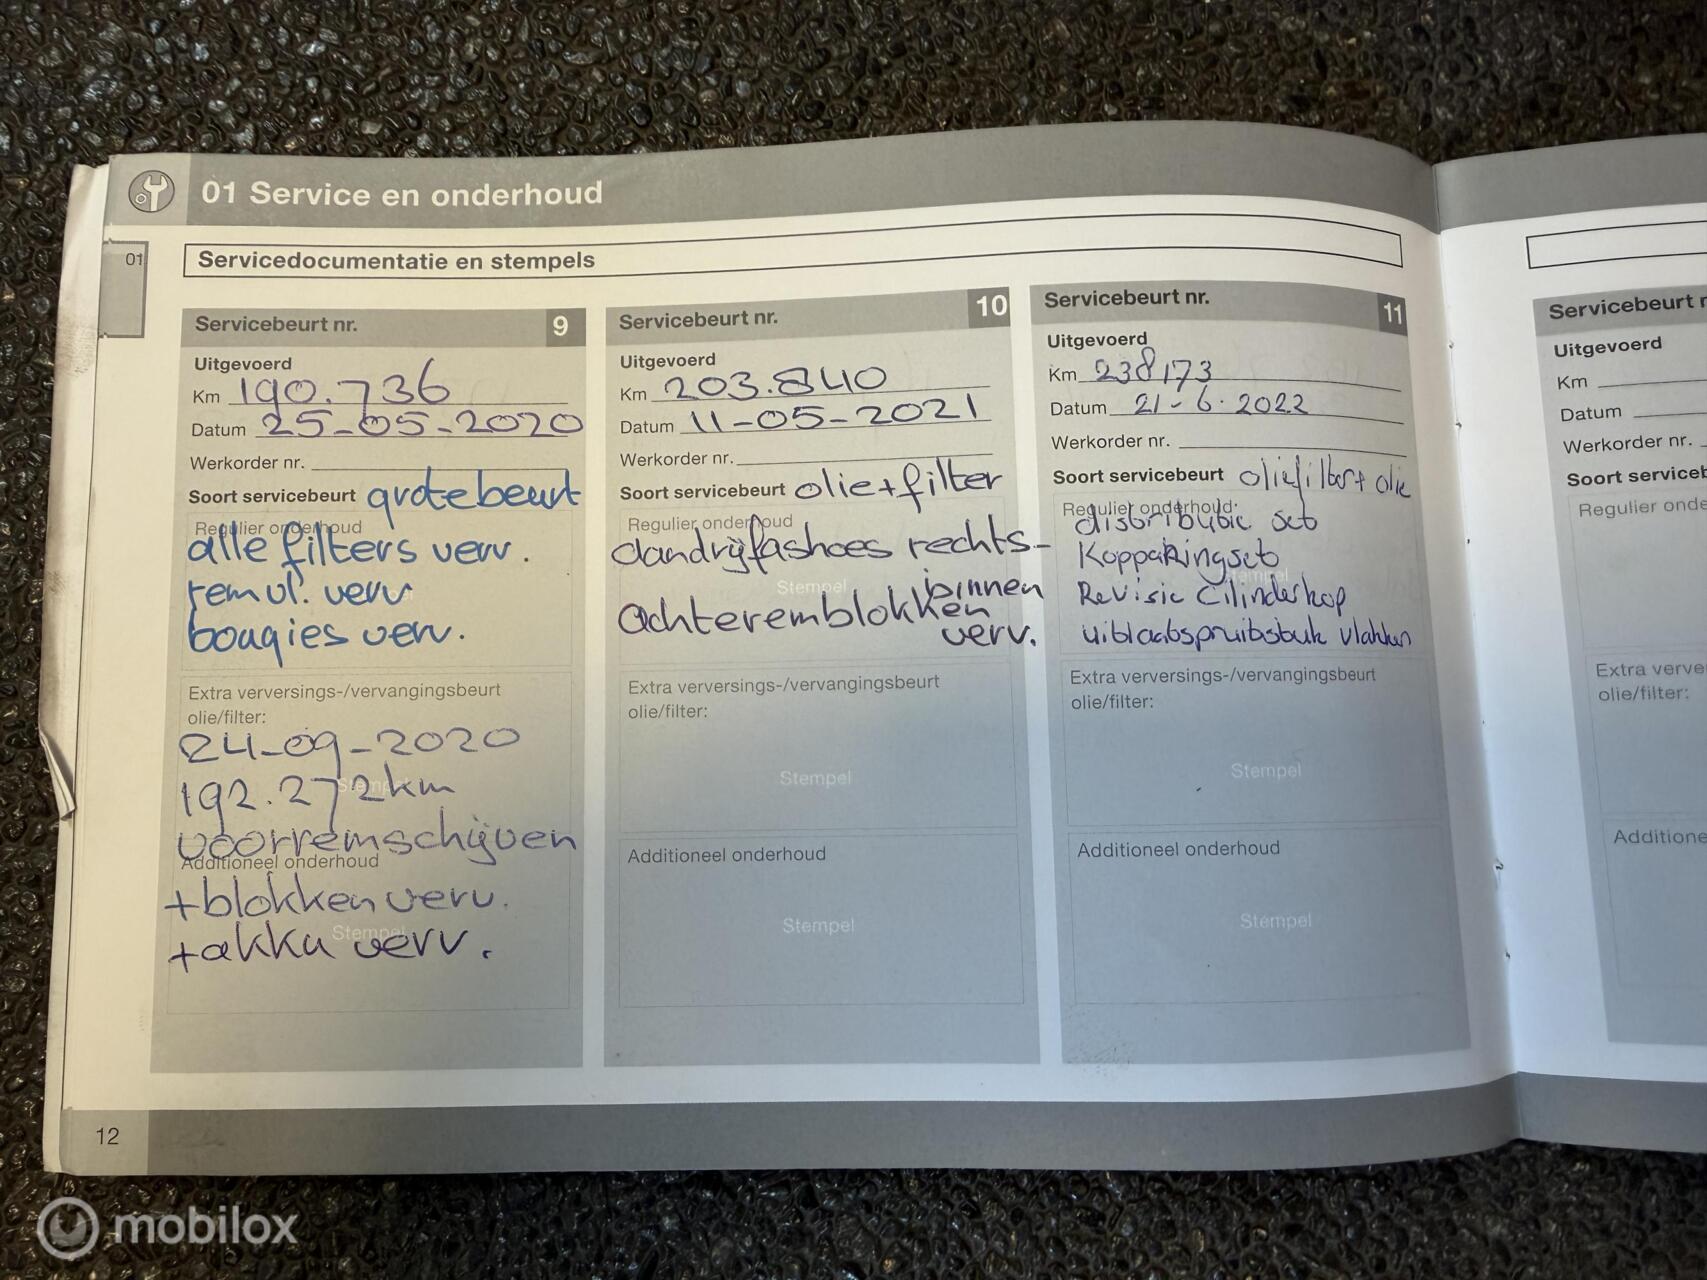 01 Service en onderhoud
01
Servicedocumentatie en stempels
Servicebeurt nr. 9
Uitgevoerd
Km 190.736
Datum 25-05-2020
Werkorder nr.
Soort servicebeurt grote beurt
Regulier onderhoud
alle filters verv.
remvl. verv
bougies verv.
Extra verversings-/vervangingsbeurt
olie/filter:
24-09-2020
192.272km
Stempel
voorremschijven
Additioneel onderhoud
+blokken verv.
Stempel
+akku verv.
Servicebeurt nr. 10
Uitgevoerd
Km 203.840
Datum 11-05-2021
Werkorder nr.
Soort servicebeurt olie+filter
Regulier onderhoud
aandrijfashoes rechts-
Stempel
binnen
achteremblokken
verv.
Extra verversings-/vervangingsbeurt
olie/filter:
Stempel
Additioneel onderhoud
Stempel
Servicebeurt nr. 11
Uitgevoerd
Km 238173
Datum 21-6-2022
Werkorder nr.
Soort servicebeurt oliefilter+ olie
Regulier onderhoud:
distributie set
Koppakingset
Stempel
Revisie Cilinderkop
uitlaatspruitstuk vlakken
Extra verversings-/vervangingsbeurt
olie/filter:
Stempel
Additioneel onderhoud
Stempel
Servicebeurt
Uitgevoerd
Km
Datum
Werkorder nr.
Soort
Regulier
Extra
olie/filter:
12
mobilox